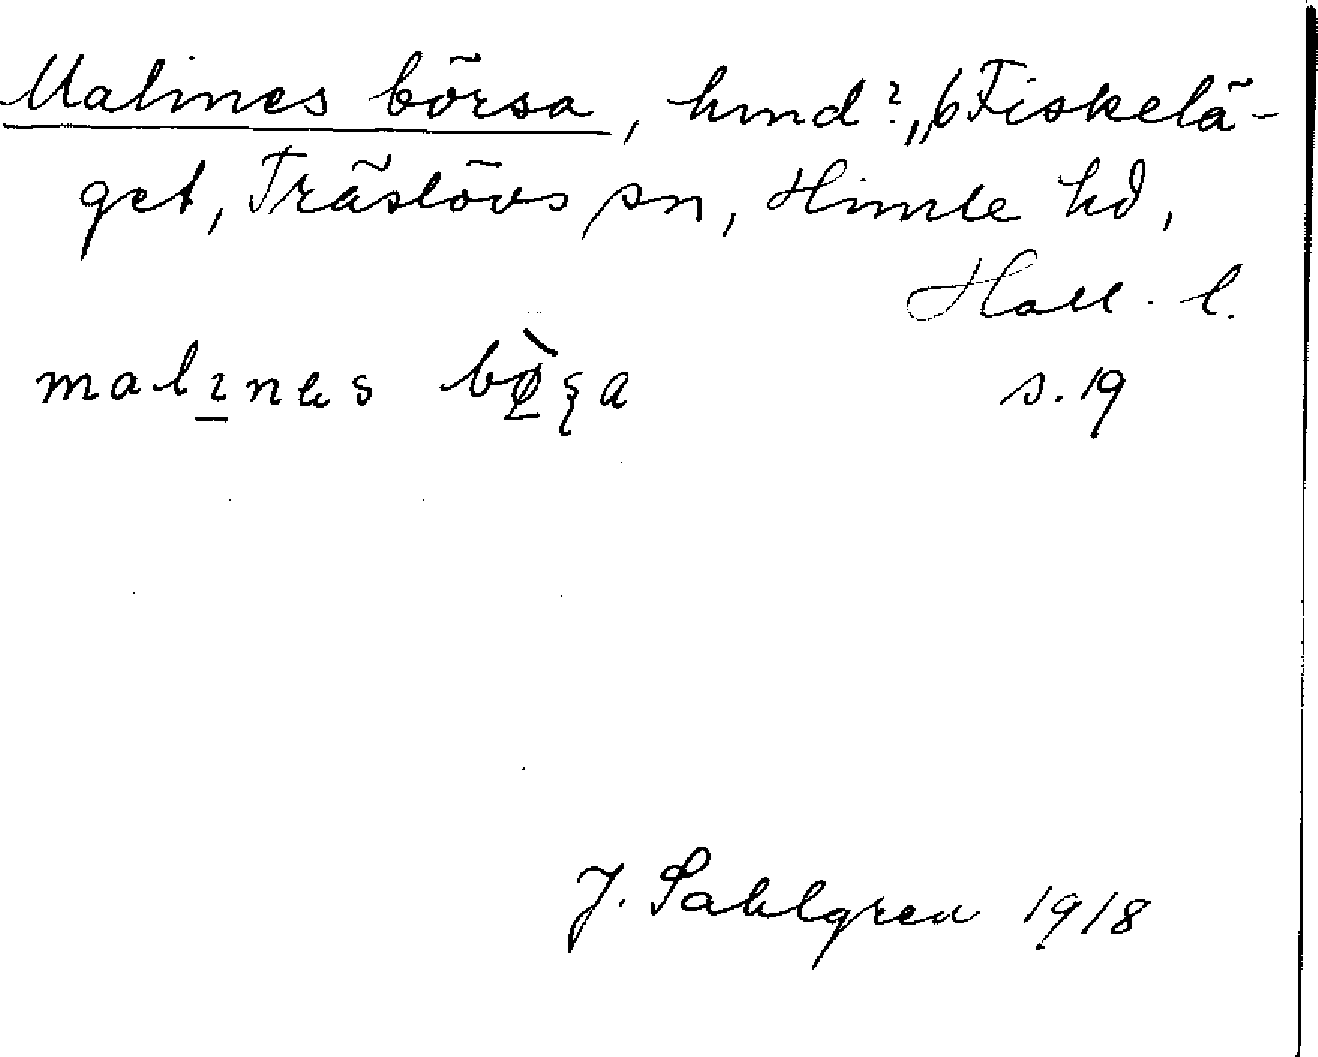 Malines börsa, hmd?, 6 Fiskelä-
get, Träslövs sn, Himle hd,
Hall. l.
malınes bø̀ʂa s. 19
J. Sahlgren 1918